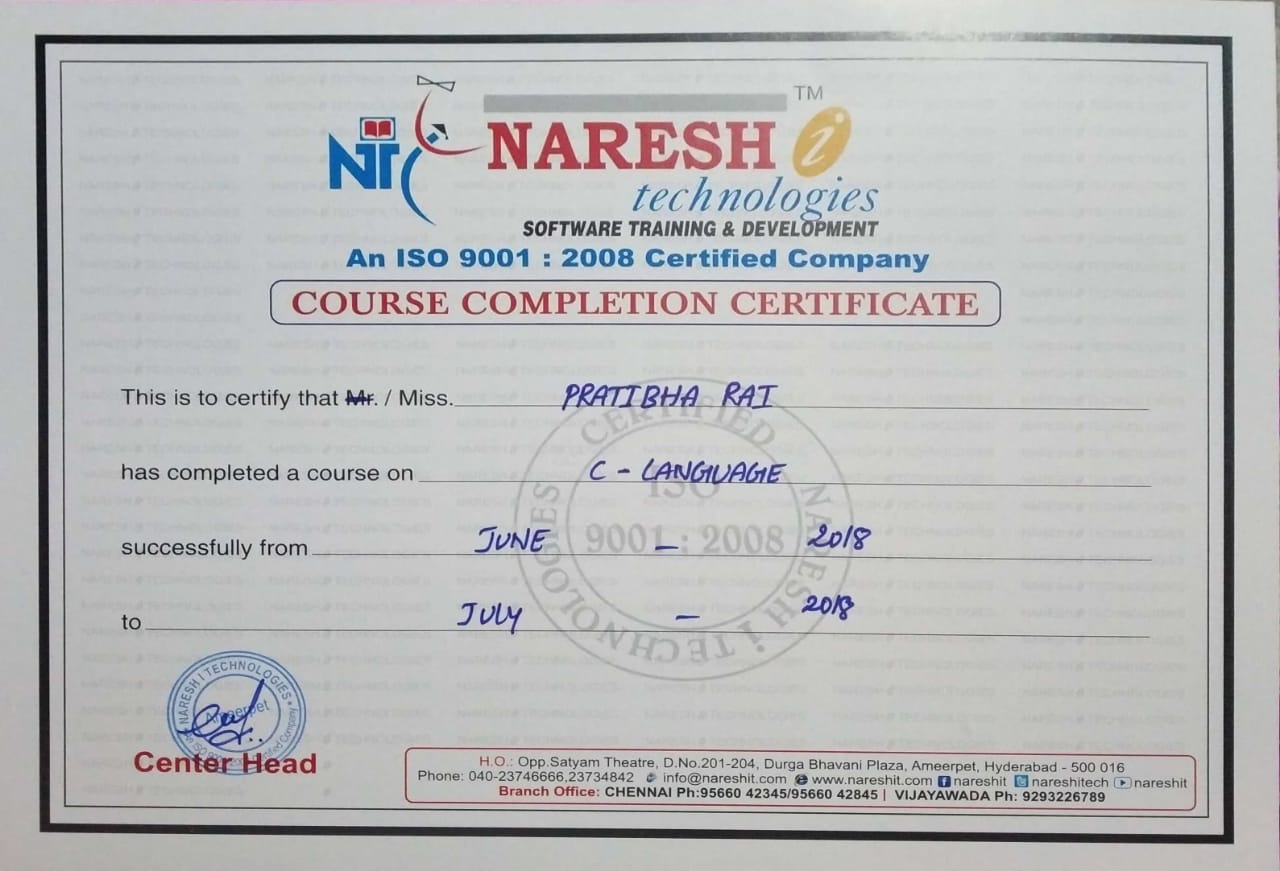 TM
NTC NARESH i
technologies
SOFTWARE TRAINING & DEVELOPMENT
An ISO 9001 : 2008 Certified Company
COURSE COMPLETION CERTIFICATE
This is to certify that Mr. / Miss. PRATIBHA RAI
has completed a course on C - LANGUAGE
successfully from JUNE - 2018
to JULY - 2018
CERTIFIED NARESH i TECHNOLOGIES
ISO
9001 : 2008
NARESH I TECHNOLOGIES
Ameerpet
Center Head
H.O.: Opp.Satyam Theatre, D.No.201-204, Durga Bhavani Plaza, Ameerpet, Hyderabad - 500 016
Phone: 040-23746666,23734842 info@nareshit.com www.nareshit.com nareshit nareshitech nareshit
Branch Office: CHENNAI Ph:95660 42345/95660 42845 | VIJAYAWADA Ph: 9293226789